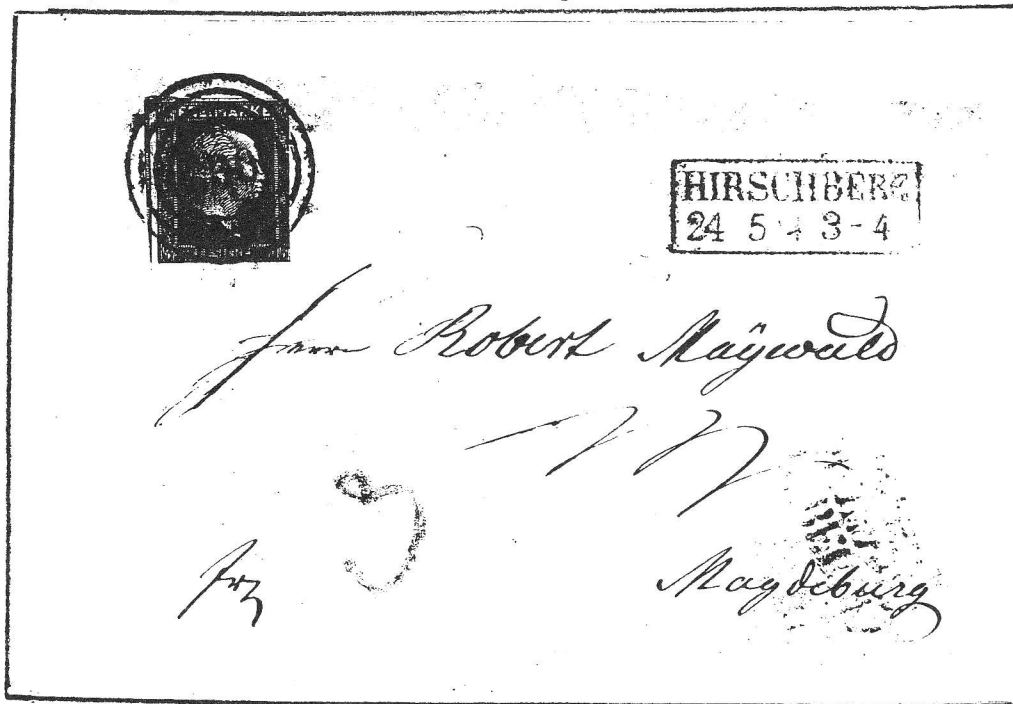 FREIMARKE
HIRSCHBERG
24 5 3-4
Herrn Robert Maywald
Magdeburg